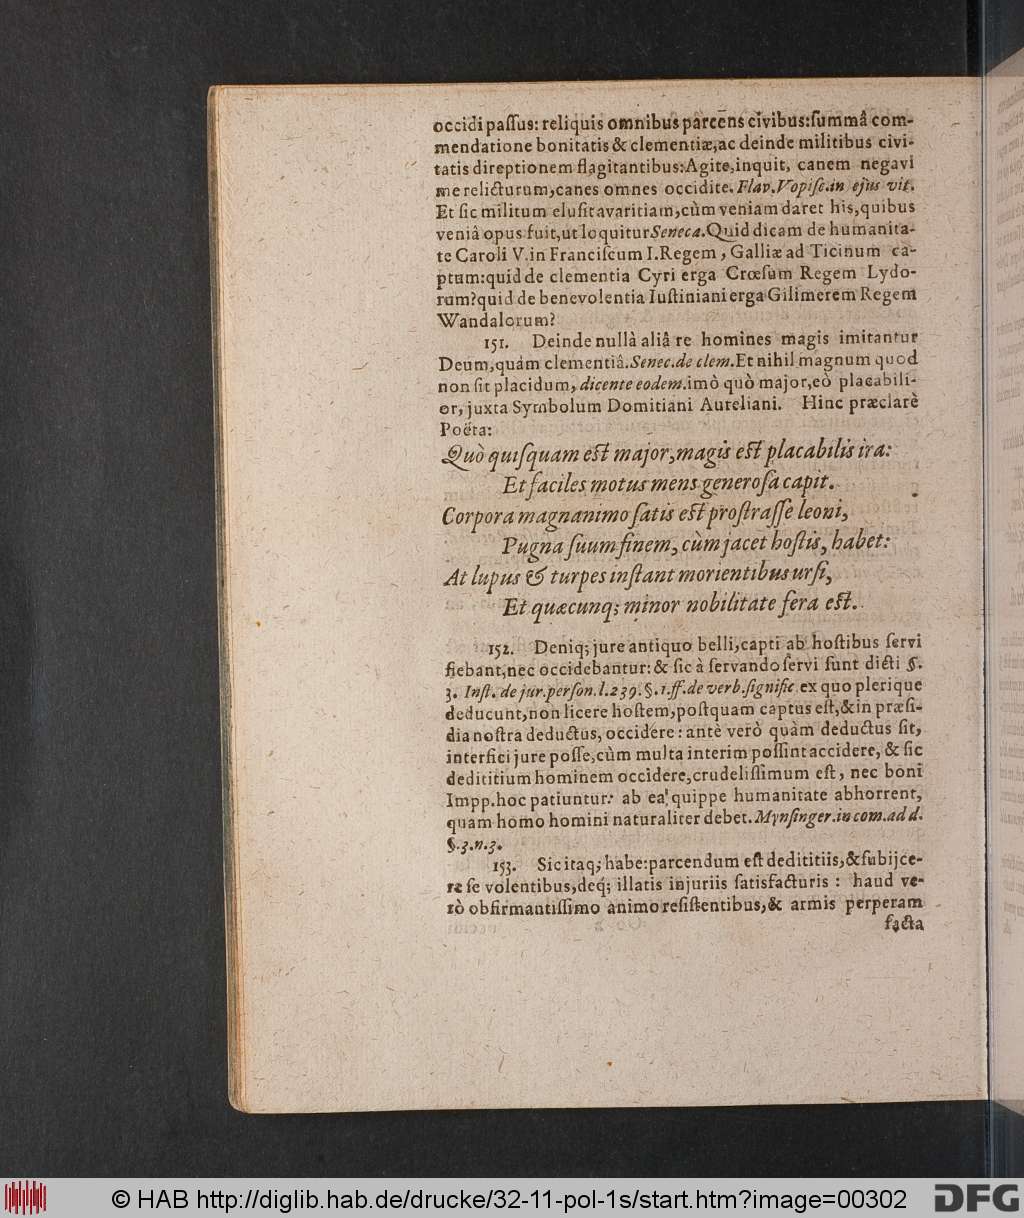 occidi passus: reliquis omnibus parcens civibus: summâ com-
mendatione bonitatis & clementiæ, ac deinde militibus civi-
tatis direptionem flagitantibus: Agite, inquit, canem negavi
me relicturum, canes omnes occidite. Flav. Vopisc. in ejus vit.
Et sic militum elusit avaritiam, cùm veniam daret his, quibus
veniâ opus fuit, ut loquitur Seneca. Quid dicam de humanita-
te Caroli V. in Franciscum I. Regem, Galliæ ad Ticinum ca-
ptum: quid de clementia Cyri erga Crœsum Regem Lydo-
rum? quid de benevolentia Iustiniani erga Gilimerem Regem
Wandalorum?
151. Deinde nullà aliâ re homines magis imitantur
Deum, quàm clementiâ. Senec. de clem. Et nihil magnum quod
non sit placidum, dicente eodem. imò quò major, eò placabili-
or, juxta Symbolum Domitiani Aureliani. Hinc præclarè
Poëta:
Quò quisquam est major, magis est placabilis ira:
Et faciles motus mens generosa capit.
Corpora magnanimo satis est prostrasse leoni,
Pugna suum finem, cùm jacet hostis, habet:
At lupus & turpes instant morientibus ursi,
Et quæcunq; minor nobilitate fera est.
152. Deniq; jure antiquo belli, capti ab hostibus servi
fiebant, nec occidebantur: & sic à servando servi sunt dicti §.
3. Inst. de jur. person. l. 239. §. 1. ff. de verb. signific. ex quo plerique
deducunt, non licere hostem, postquam captus est, & in præsi-
dia nostra deductus, occidere: antè verò quàm deductus sit,
interfici jure posse, cùm multa interim possint accidere, & sic
dedititium hominem occidere, crudelissimum est, nec boni
Impp. hoc patiuntur: ab ea quippe humanitate abhorrent,
quam homo homini naturaliter debet. Mynsinger. in com. ad d.
§. 3. n. 3.
153. Sic itaq; habe: parcendum est dedititiis, & subijce-
re se volentibus, deq; illatis injuriis satisfacturis: haud ve-
rò obfirmantissimo animo resistentibus, & armis perperam
facta
© HAB http://diglib.hab.de/drucke/32-11-pol-1s/start.htm?image=00302
DFG